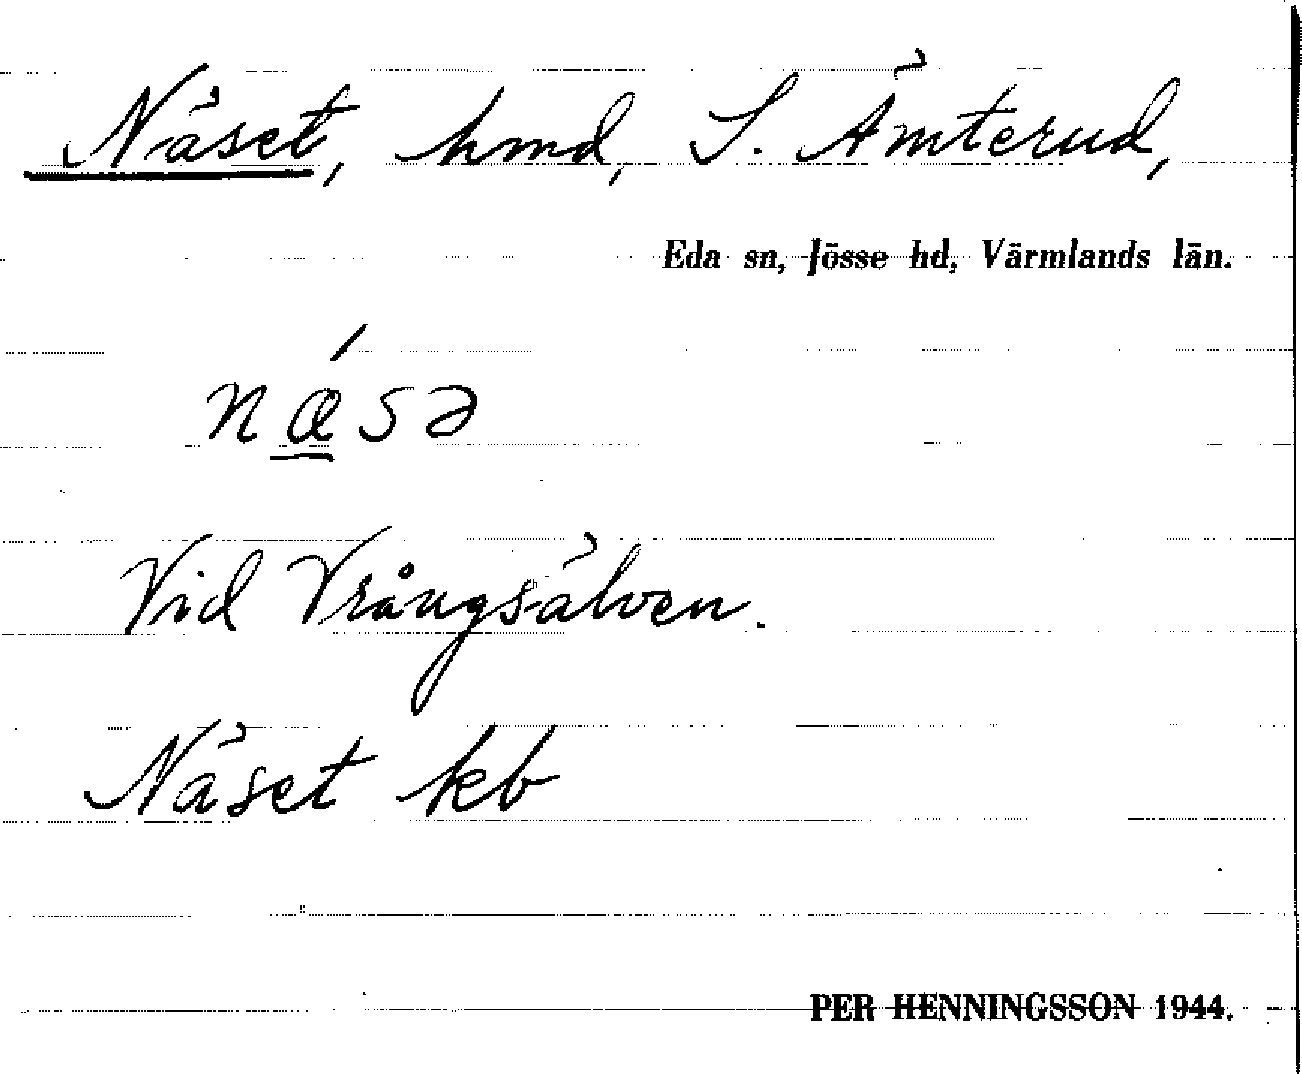 Näset, hmd, S. Ämterud,
Eda sn, Jösse hd, Värmlands län.
nǽ̲sə
Vid Vrångsälven.
Näset kb
PER HENNINGSSON 1944.